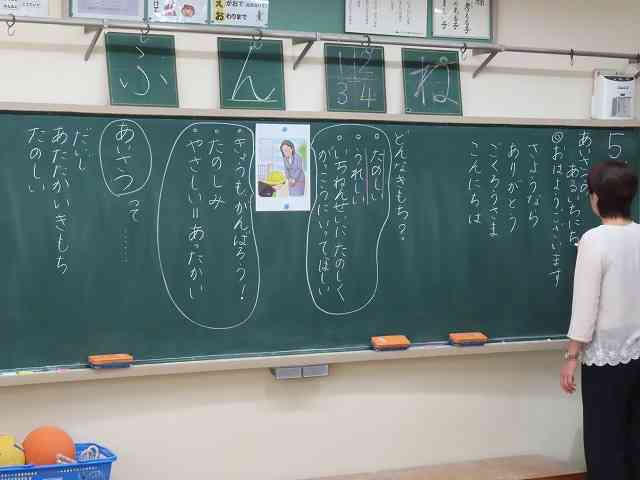 5
あいさつの
あるいちにち
◎おはようございます
さようなら
ありがとう
ごくろうさま
こんにちは
どんなきもち？
・たのしい
・うれしい
・いちねんせいにたのしく
がっこうにいってほしい
・きょうもがんばろう！
・たのしみ
・やさしい＝あったかい
あいさつって
……
だいじ
あたたかいきもち
たのしい
ぶ
ん
ね